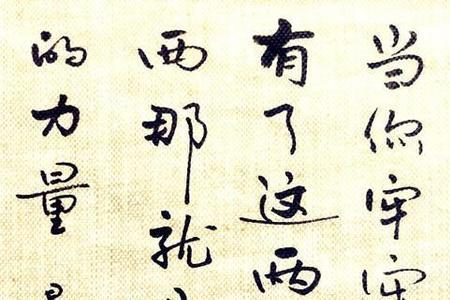 当你牢牢
有了这两
西那就
的力量